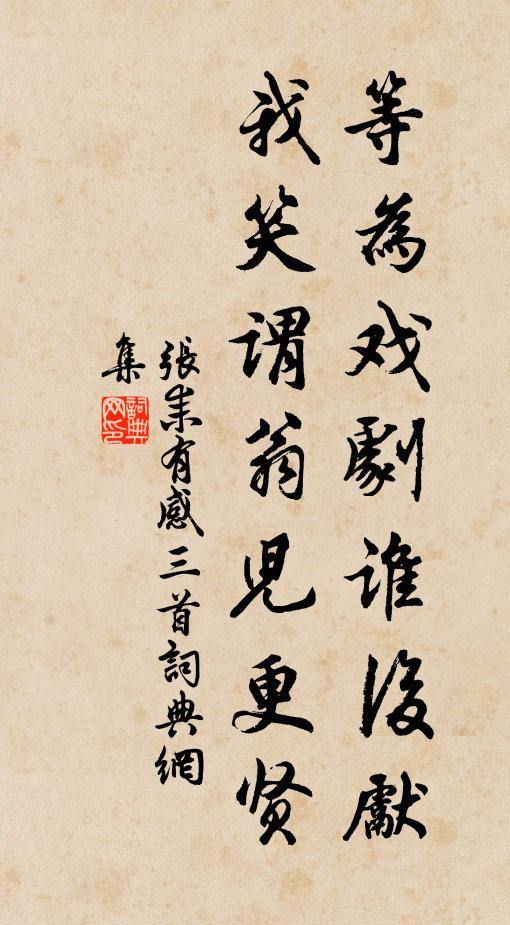 等為戏劇誰後獻
我笑謂翁兒更贤
張耒有感三首詞典網
集
詞典网印